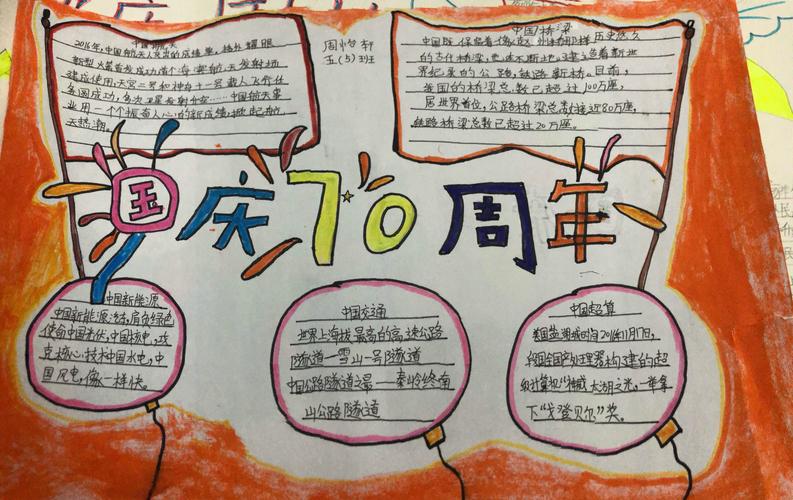 中国航天
2016年,中国航天人交出的成绩单,格外耀眼
新型火箭首发成功首个海滨航天发射场
建成使用,天宫二号和神舟十一号载人飞行任
务圆成功,多次卫星发射升空……中国航天事
业用一个个振奋人心的新成绩,掀起航
天热潮。
周怡轩
五(5)班
中国桥梁
中国既保留着像赵州桥那样历史悠久
的古代桥梁,
世界纪录的公路,铁路新桥。目前,
我国的桥梁总数已超过100万座,
居世界首位,公路桥梁总数接近80万座,
铁路桥梁总数已超过20万座。
国庆70周年
中国新能源
中国新能源法,肩负绿色
使命中国光伏,中国核电,攻
克核心技术中国水电,中
国风电,像一样快。
中国交通
世界上海拔最高的高速公路
隧道—雪山一号隧道
中国公路隧道之最——秦岭终南
山公路隧道
中国超算
美国盐湖城时间2016年11月17日,
我国国产处理器构建的超
级计算机"神威·太湖之光"一举拿
下"戈登贝尔"奖。